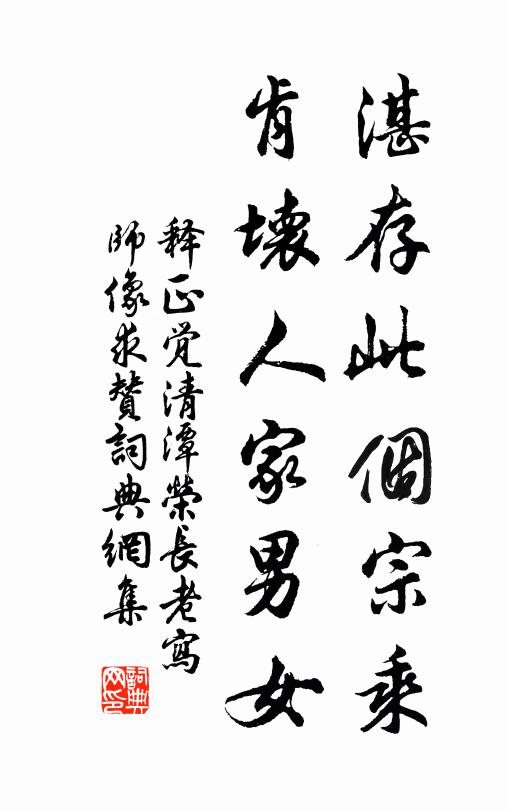 湛存此個宗乘
肯壞人家男女
释正觉清潭榮長老寫
師像求贊詞典網集
詞典網印